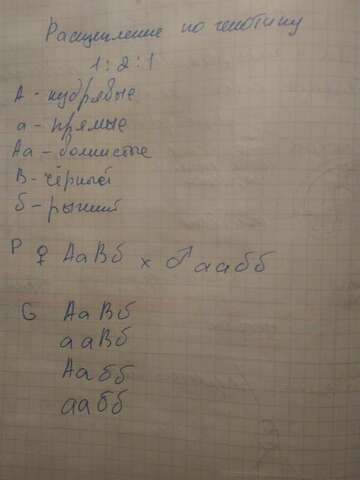 Расщепление по генотипу
1:2:1
А - кудрявые
а - прямые
Аа - волнистые
В - чёрный
б - рыжий
Р ♀ АаВб × ♂ аабб
G АаВб
ааВб
Аабб
аабб